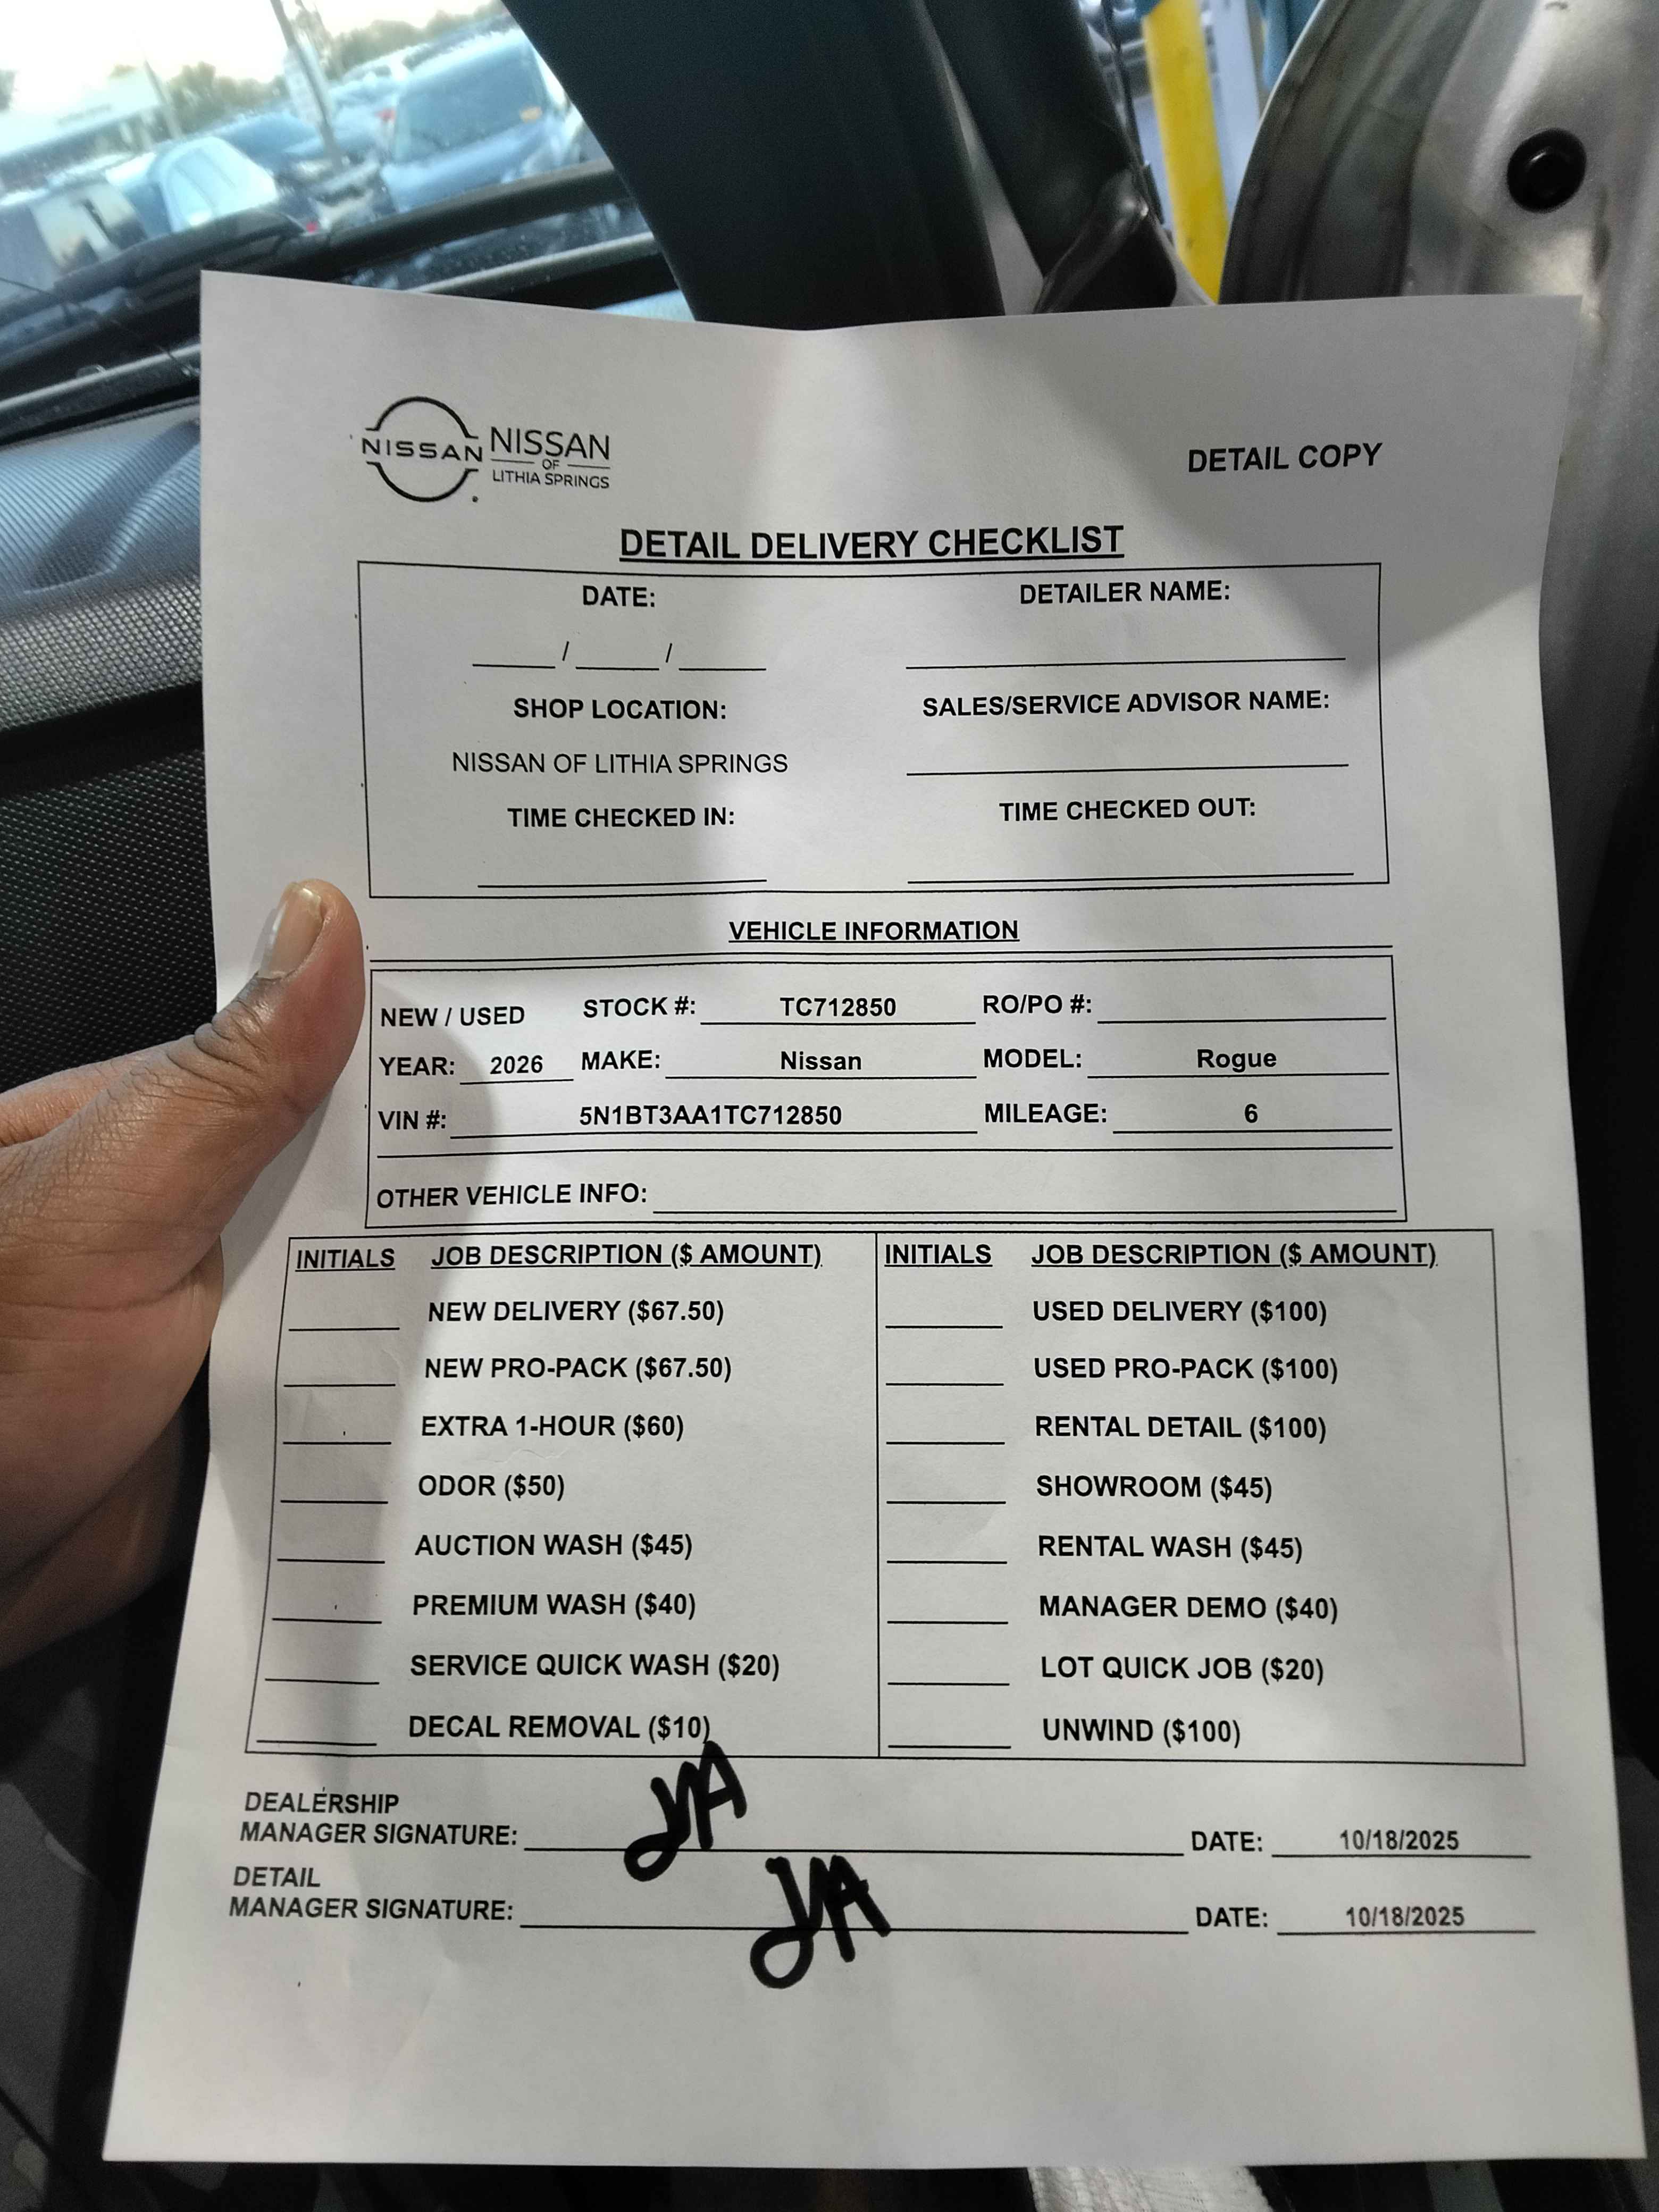 NISSAN NISSAN
OF
LITHIA SPRINGS
DETAIL COPY
DETAIL DELIVERY CHECKLIST
DATE: DETAILER NAME:
____ / ____ / ____
SHOP LOCATION: SALES/SERVICE ADVISOR NAME:
NISSAN OF LITHIA SPRINGS
TIME CHECKED IN: TIME CHECKED OUT:
VEHICLE INFORMATION
NEW / USED STOCK #: TC712850 RO/PO #:
YEAR: 2026 MAKE: Nissan MODEL: Rogue
VIN #: 5N1BT3AA1TC712850 MILEAGE: 6
OTHER VEHICLE INFO:
INITIALS JOB DESCRIPTION ($ AMOUNT) INITIALS JOB DESCRIPTION ($ AMOUNT)
NEW DELIVERY ($67.50) USED DELIVERY ($100)
NEW PRO-PACK ($67.50) USED PRO-PACK ($100)
EXTRA 1-HOUR ($60) RENTAL DETAIL ($100)
ODOR ($50) SHOWROOM ($45)
AUCTION WASH ($45) RENTAL WASH ($45)
PREMIUM WASH ($40) MANAGER DEMO ($40)
SERVICE QUICK WASH ($20) LOT QUICK JOB ($20)
DECAL REMOVAL ($10) UNWIND ($100)
DEALERSHIP
MANAGER SIGNATURE: DATE: 10/18/2025
DETAIL
MANAGER SIGNATURE: DATE: 10/18/2025